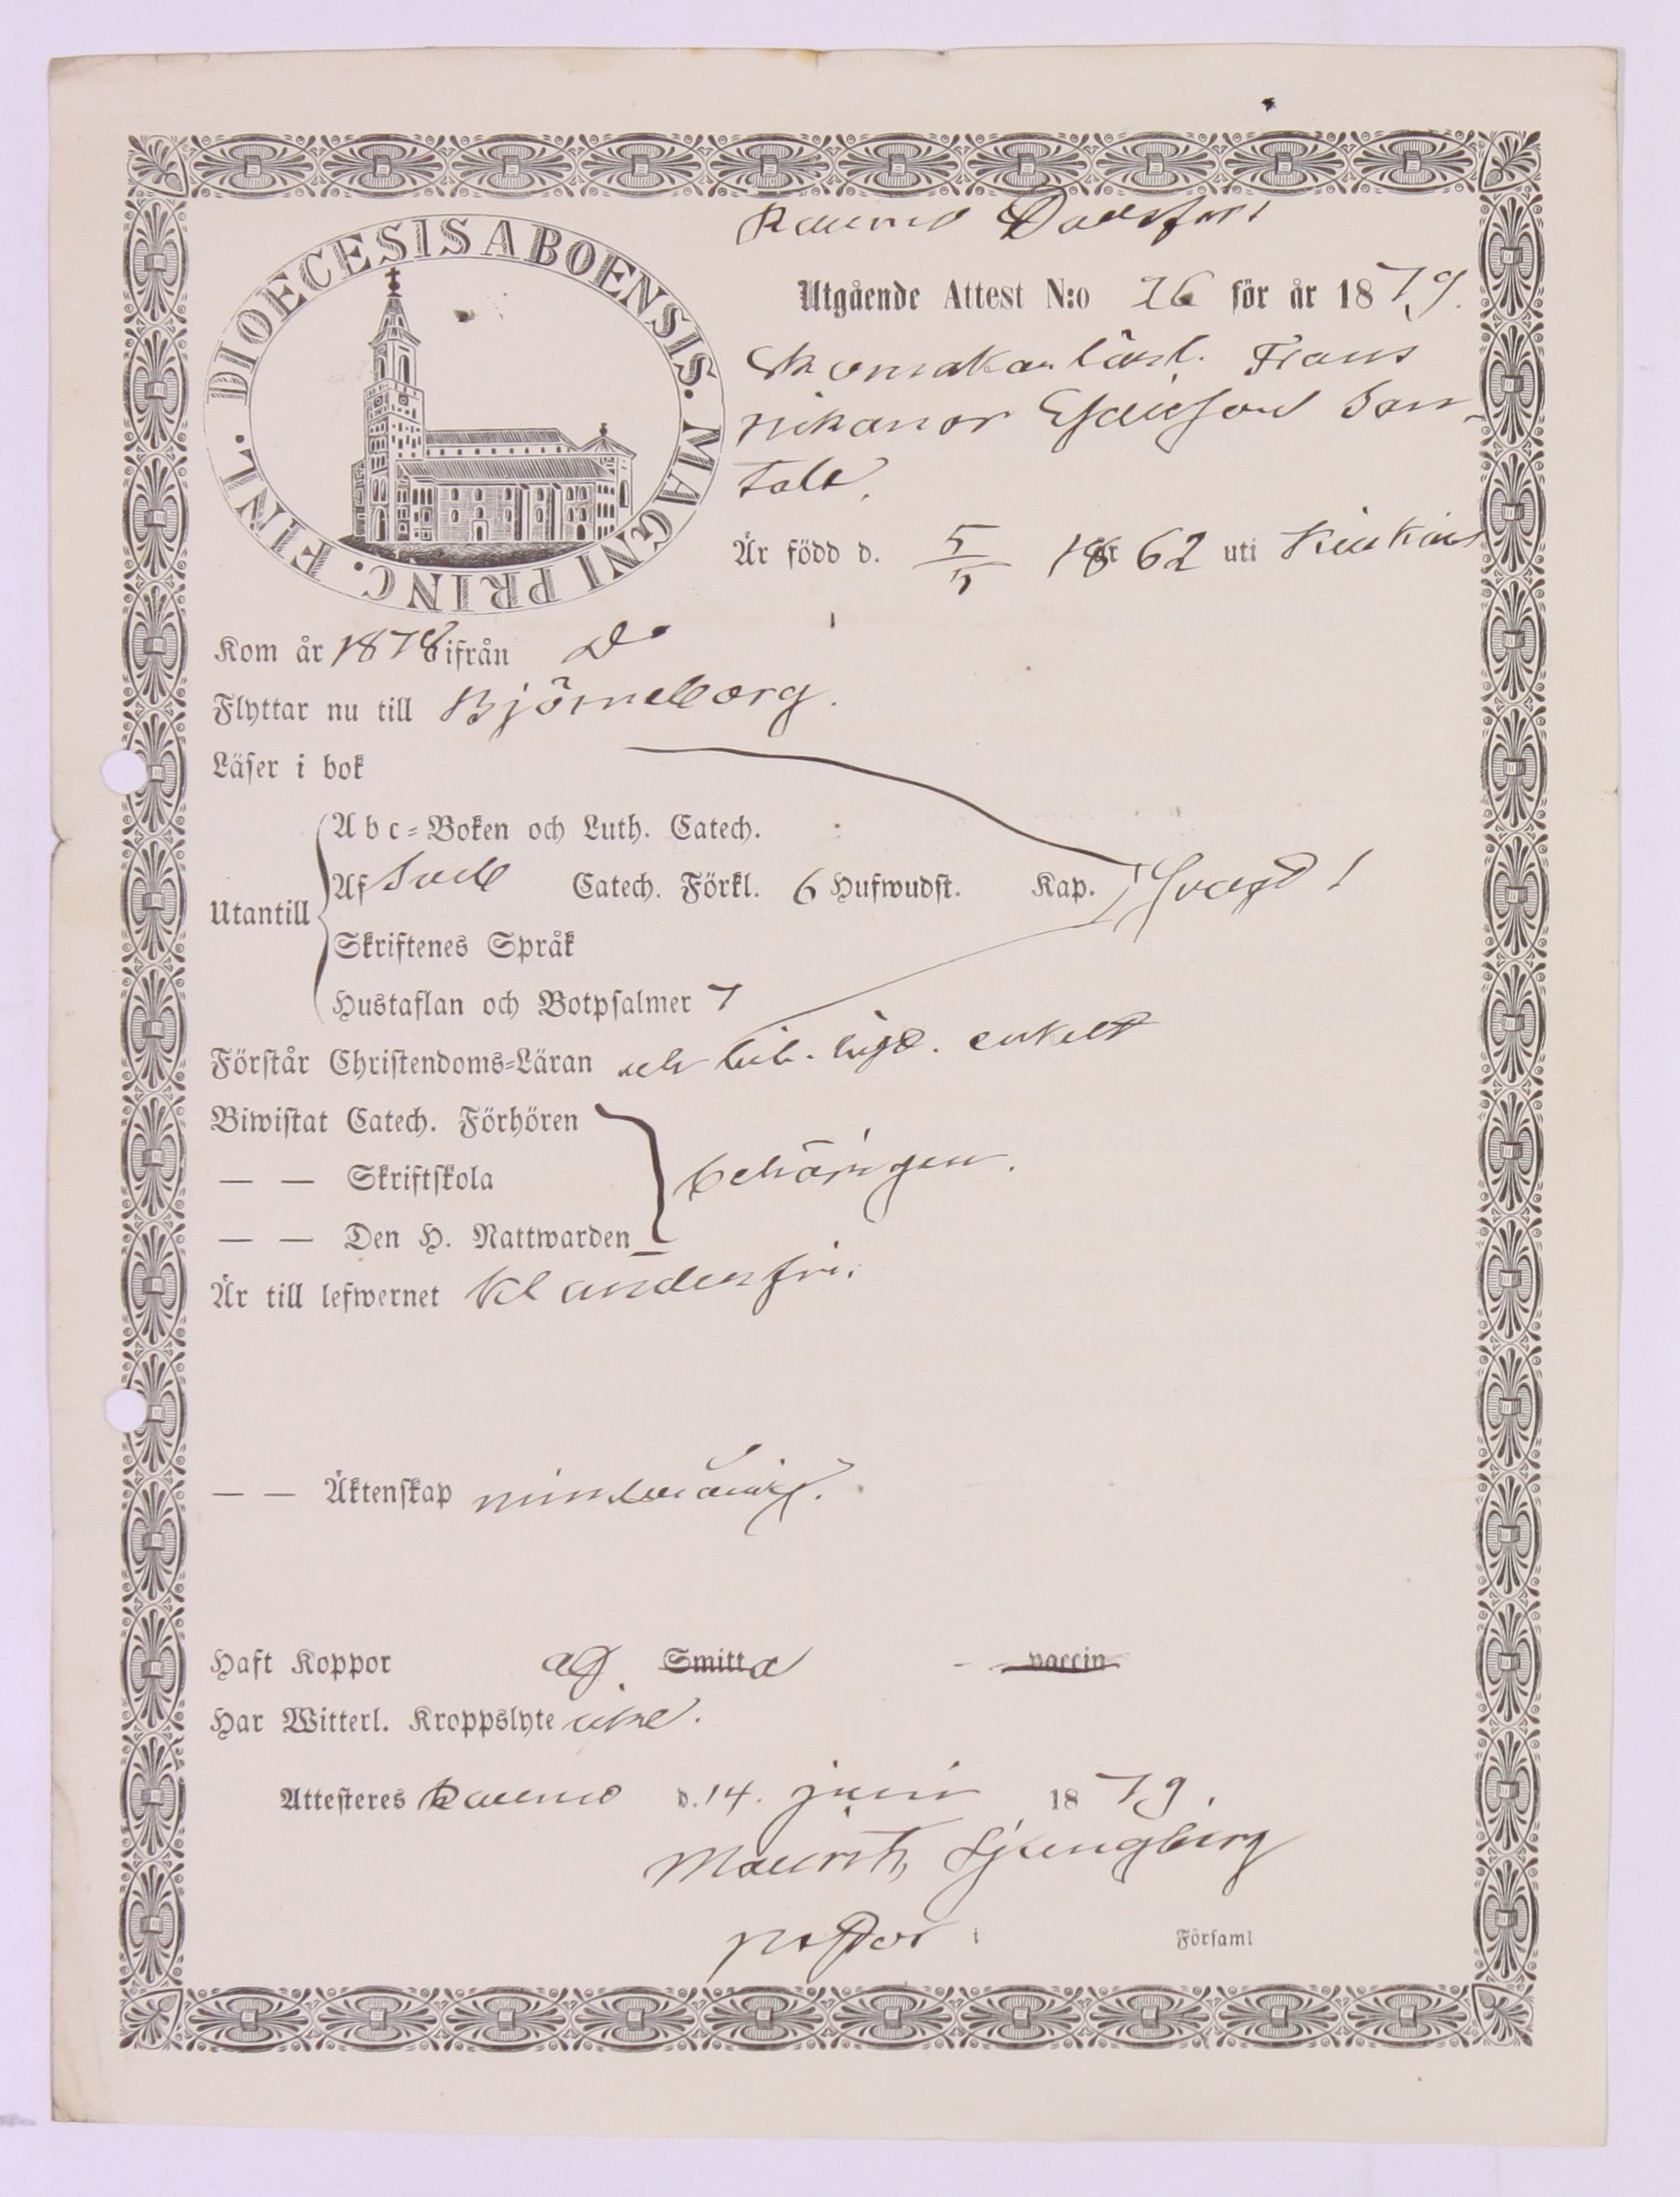 DIOECESIS ABOENSIS. MAGNI PRINC. FINL.
Raumo
Utgående Attest N:o 26 för år 1879.
Skomakarlärl. Frans
Nikanor Esaiasson San-
tala.
Är född d. 5/5 1862 uti Kiukais
Kom år 1878 ifrån Do
Flyttar nu till Björneborg.
Läser i bok
Utantill
Abc-Boken och Luth. Catech.
Af Sveb Catech. Förkl. 6 Hufwudst. Kap. svagt
Skriftenes Språk
Hustaflan och Botpsalmer 7
Förstår Christendoms-Läran enkelt
Biwistat Catech. Förhören
— — Skriftskola behörigen.
— — Den H. Nattwarden
Är till lefwernet klanderfri.
— — Äktenskap minderårig.
Haft Koppor Smitta vaccin
Har Witterl. Kroppslyte icke.
Attesteres Raumo d. 14. juni 1879.
Maurits Ljungberg
pastor
Församl